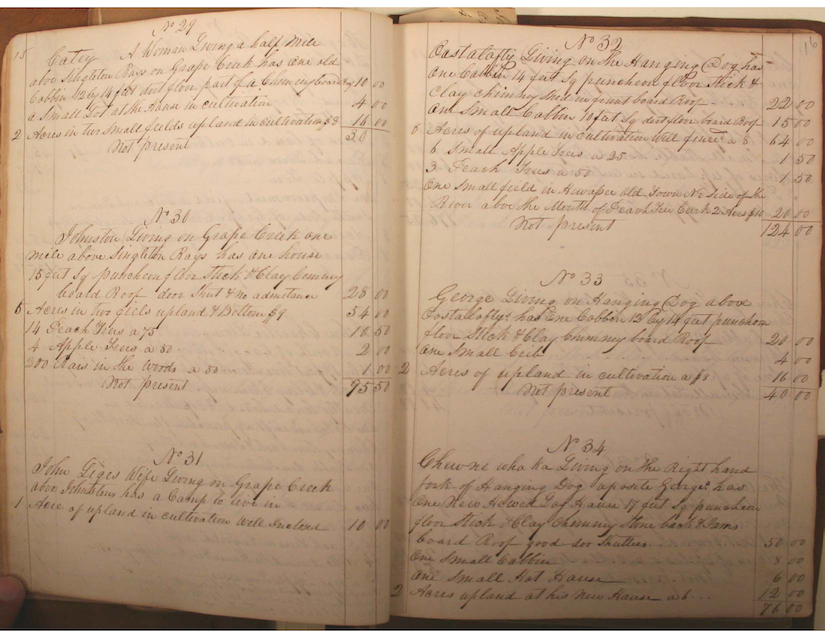 15
No 29
Catey A Woman Living a half Mile
above Singleton Rays on Grape Creek has one old
Cabbin 12 by 14 feet dirt floor part of a Chimney board Roof 10 00
a Small Lot at the House in cultivation 4 00
2 Acres in two small fields upland in cultivation $8 16 00
Not present 30
No 30
Johnston Living on Grape Creek one
mile above Singleton Rays has one house
15 feet Sq puncheon floor Stick & Clay Chimney
board Roof door Shut & no admitance 28 00
6 Acres in two fiels upland & Bottom $9 54 00
14 Peach Trees a 75 10 50
4 Apple Trees a 50 2 00
200 Rais in the Woods a 50 1 00
Not present 95 50
No 31
John Wife Living on Grape Creek
above Johnstons has a Camp to live in
1 Acre of upland in cultivation Well Inclosed 10 00
16
No 32
Oastalofty Living on the Hanging Dog has
One Cabbin 14 feet Sq puncheon floor Stick &
Clay Chimney Shed in front board Roof 22 00
One Small Cabbin 10 feet Sq dirt floor board Roof 15 00
8 Acres of upland in Cultivation Well fence a 8 64 00
6 Small Apple Trees a 25 1 50
3 Peach Trees a 50 1 50
One Small field in Hiwassee old Town No side of the
River above the Mouth of Peach Tree Creek 2 Acres $10 20 00
Not present 124 00
No 33
George Living on Hanging Dog above
Oostaloftys has One Cabbin 13 by 14 feet puncheon
floor Stick & Clay Chimney board Roof 20 00
One Small Crib 4 00
2 Acres of upland in cultivation a $8 16 00
Not present 40 00
No 34
Chewne who ka Living on the Right hand
fork of Hanging Dog oposite Georges has
One New Hewed Log House 17 feet Sq puncheon
floor Stick & Clay Chimney Stone back & Jams
board Roof good dor Shutters 50 00
One Small Cabbin 8 00
One Small Hot House 6 00
2 Acres upland at his New House a 6 12 00
76 00